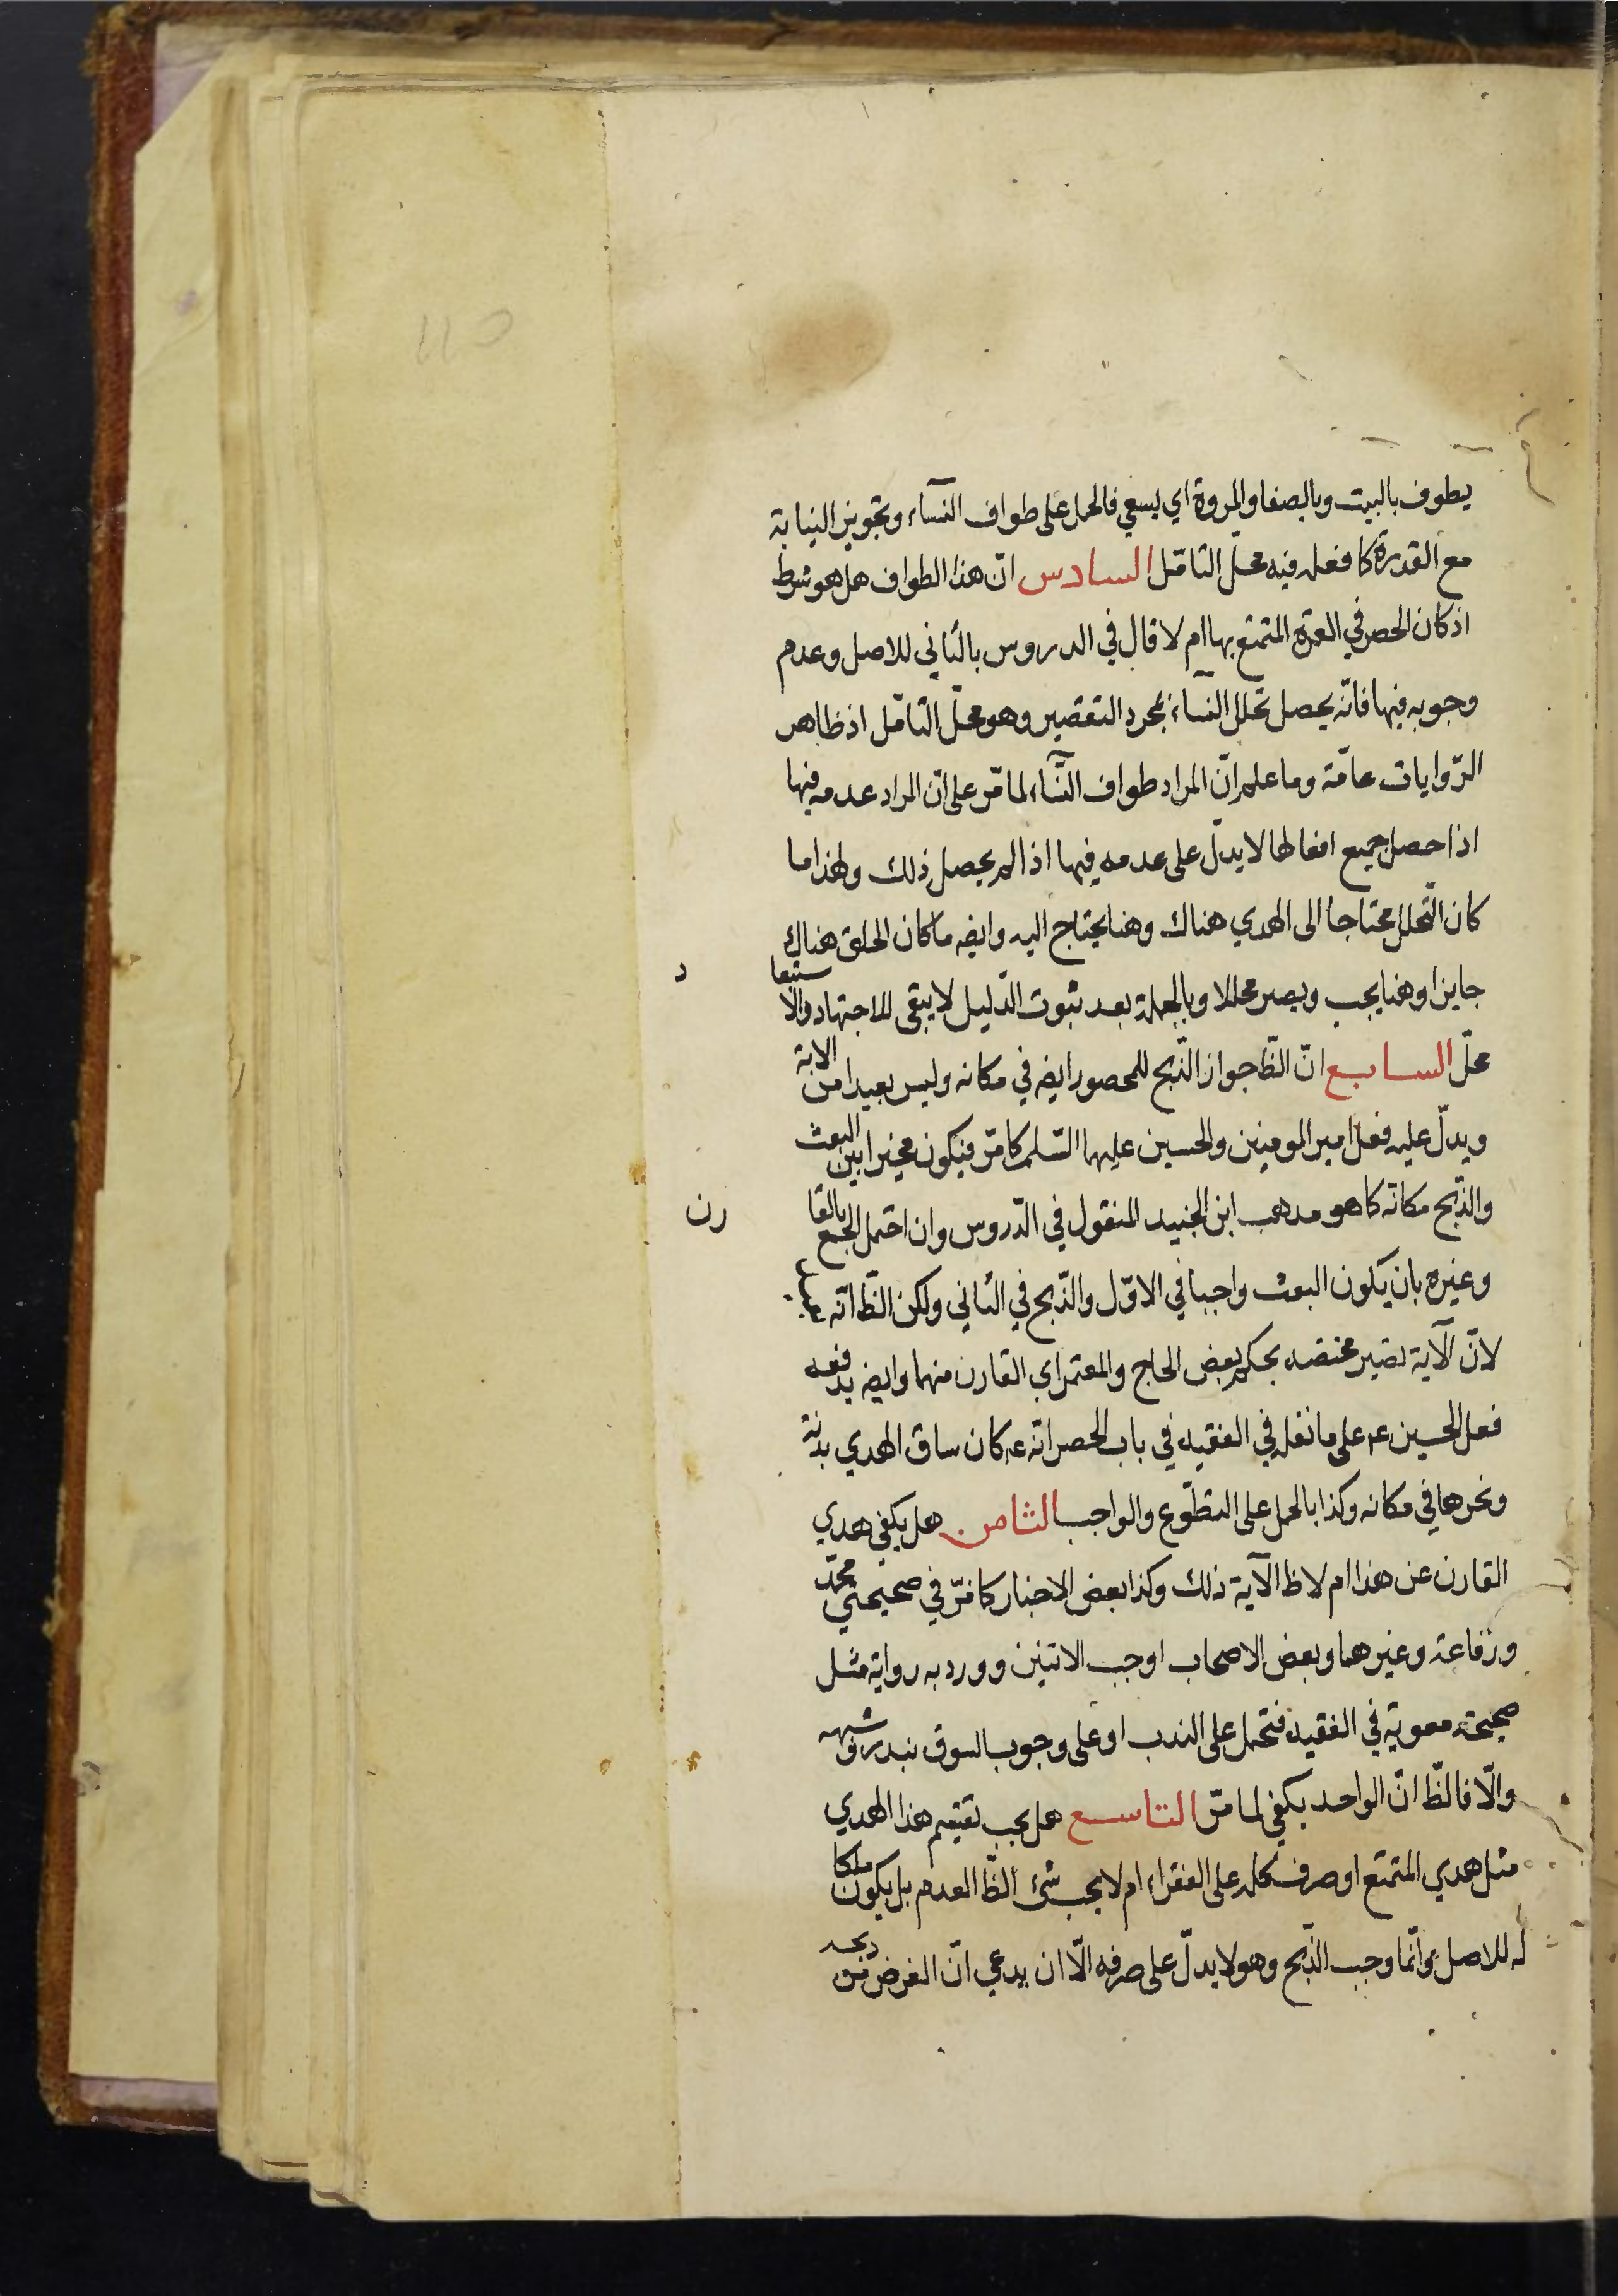 يطوف بالبيت وبالصفا والمروة اي يسعى فالحمل على طواف النسآء وتجويز النيابة
مع القدرة كا فعله فيه محل التامل السادس ان هذا الطواف هل هو شرط
اذ كان الحصر في العمرة المتمتع بها ام لا قال في الدروس بالثاني للاصل وعدم
وجوبه فيها فانّه يحصل تحلل النسآء بمجرد التقصير وهو محلّ التامّل اذ ظاهر
الرّوايات عامّة وما علم انّ المراد طواف النّسآء لما مّر على انّ المراد عدمه فيها
اذا حصل جميع افعالها لا يدلّ على عدمه فيها اذا لم يحصل ذلك ولهذا ما
كان التّحلل محتاجا الى الهدي هناك وهنا يحتاج اليه وايضه ما كان الحلق هناك
جايزا وهنا يجب ويصير محللا وبالجملة بعد ثبوت الدّليل لا يبقى للاجتهاد والاستبعا د
محلّ السابع انّ الظّ جواز الذّبح للمحصور ايضه في مكانه وليس بعيدا من الاية
ويدلّ عليه فعل امير المومنين والحسين عليهما السّلم كا مّر فيكون مخيرا بين البعث
والذّبح مكانه كا هو مدهب ابن الجنيد المنقول في الدّروس وان احتمل الجمع بالقا رن
وغيره بان يكون البعث واجبا في الاوّل والذّبح في الثاني ولكن الظّ انّه
لانّ الآية تصير مختصه بحكم بعض الحاج والمعتمر اي القارن منهما وايضه يدفعه
فعل الحسين عم على ما نقله في الفقيه في باب الحصر انه عم كان ساق الهدي بدنة
ونحرها في مكانه وكذا بالحمل على التطّوع والواجب الثامن هل يكفي هدي
القارن عن هذا ام لا ظ الآية ذلك وكذا بعض الاخبار كا مّر في صحيحتي محمّد
ورفاعة وغيرهما وبعض الاصحاب اوجب الاثنين وورد به رواية مثل
صحيحة معوية في الفقيه فتحمل على الندب او على وجوب السوق بنذر وشبهه
والّا فالظّ انّ الواحد يكفي لما مّر التاسع هل يجب تقسيم هذا الهدي
مثل هدي المتمتع او صرف كله على الفقراء ام لا يجب شئ الظّ العدم بل يكون ملكا
له للاصل وانّما وجب الذّبح وهو لا يدلّ على صرفه الّا ان يدعي انّ الغرض من ذبحه